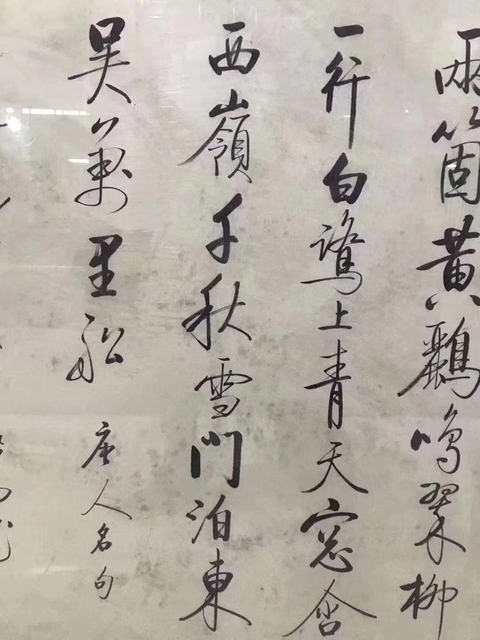 兩箇黃鸝鳴翠柳
一行白鷺上青天窓含
西嶺千秋雪門泊東
吴萬里船
唐人名句